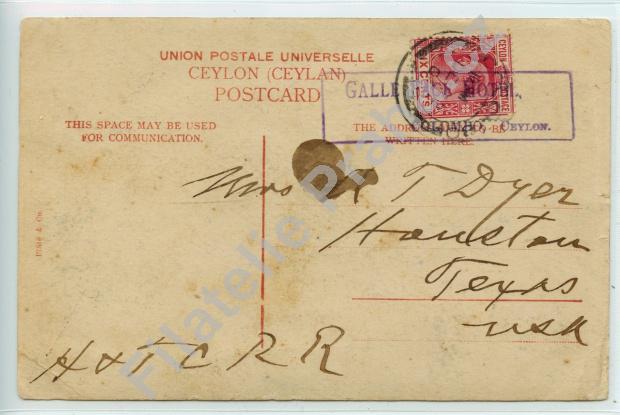 UNION POSTALE UNIVERSELLE
CEYLON (CEYLAN)
POSTCARD
THIS SPACE MAY BE USED
FOR COMMUNICATION.
THE ADDRESS BE
WRITTEN HERE.
GALLE FACE HOTEL,
COLOMBO, CEYLON.
CEYLON
POSTAGE
SIX CENTS
Plâté & Co.
Mrs R T Dyer
Houston
Texas
USA
H & T C R R
Filatelie Praha